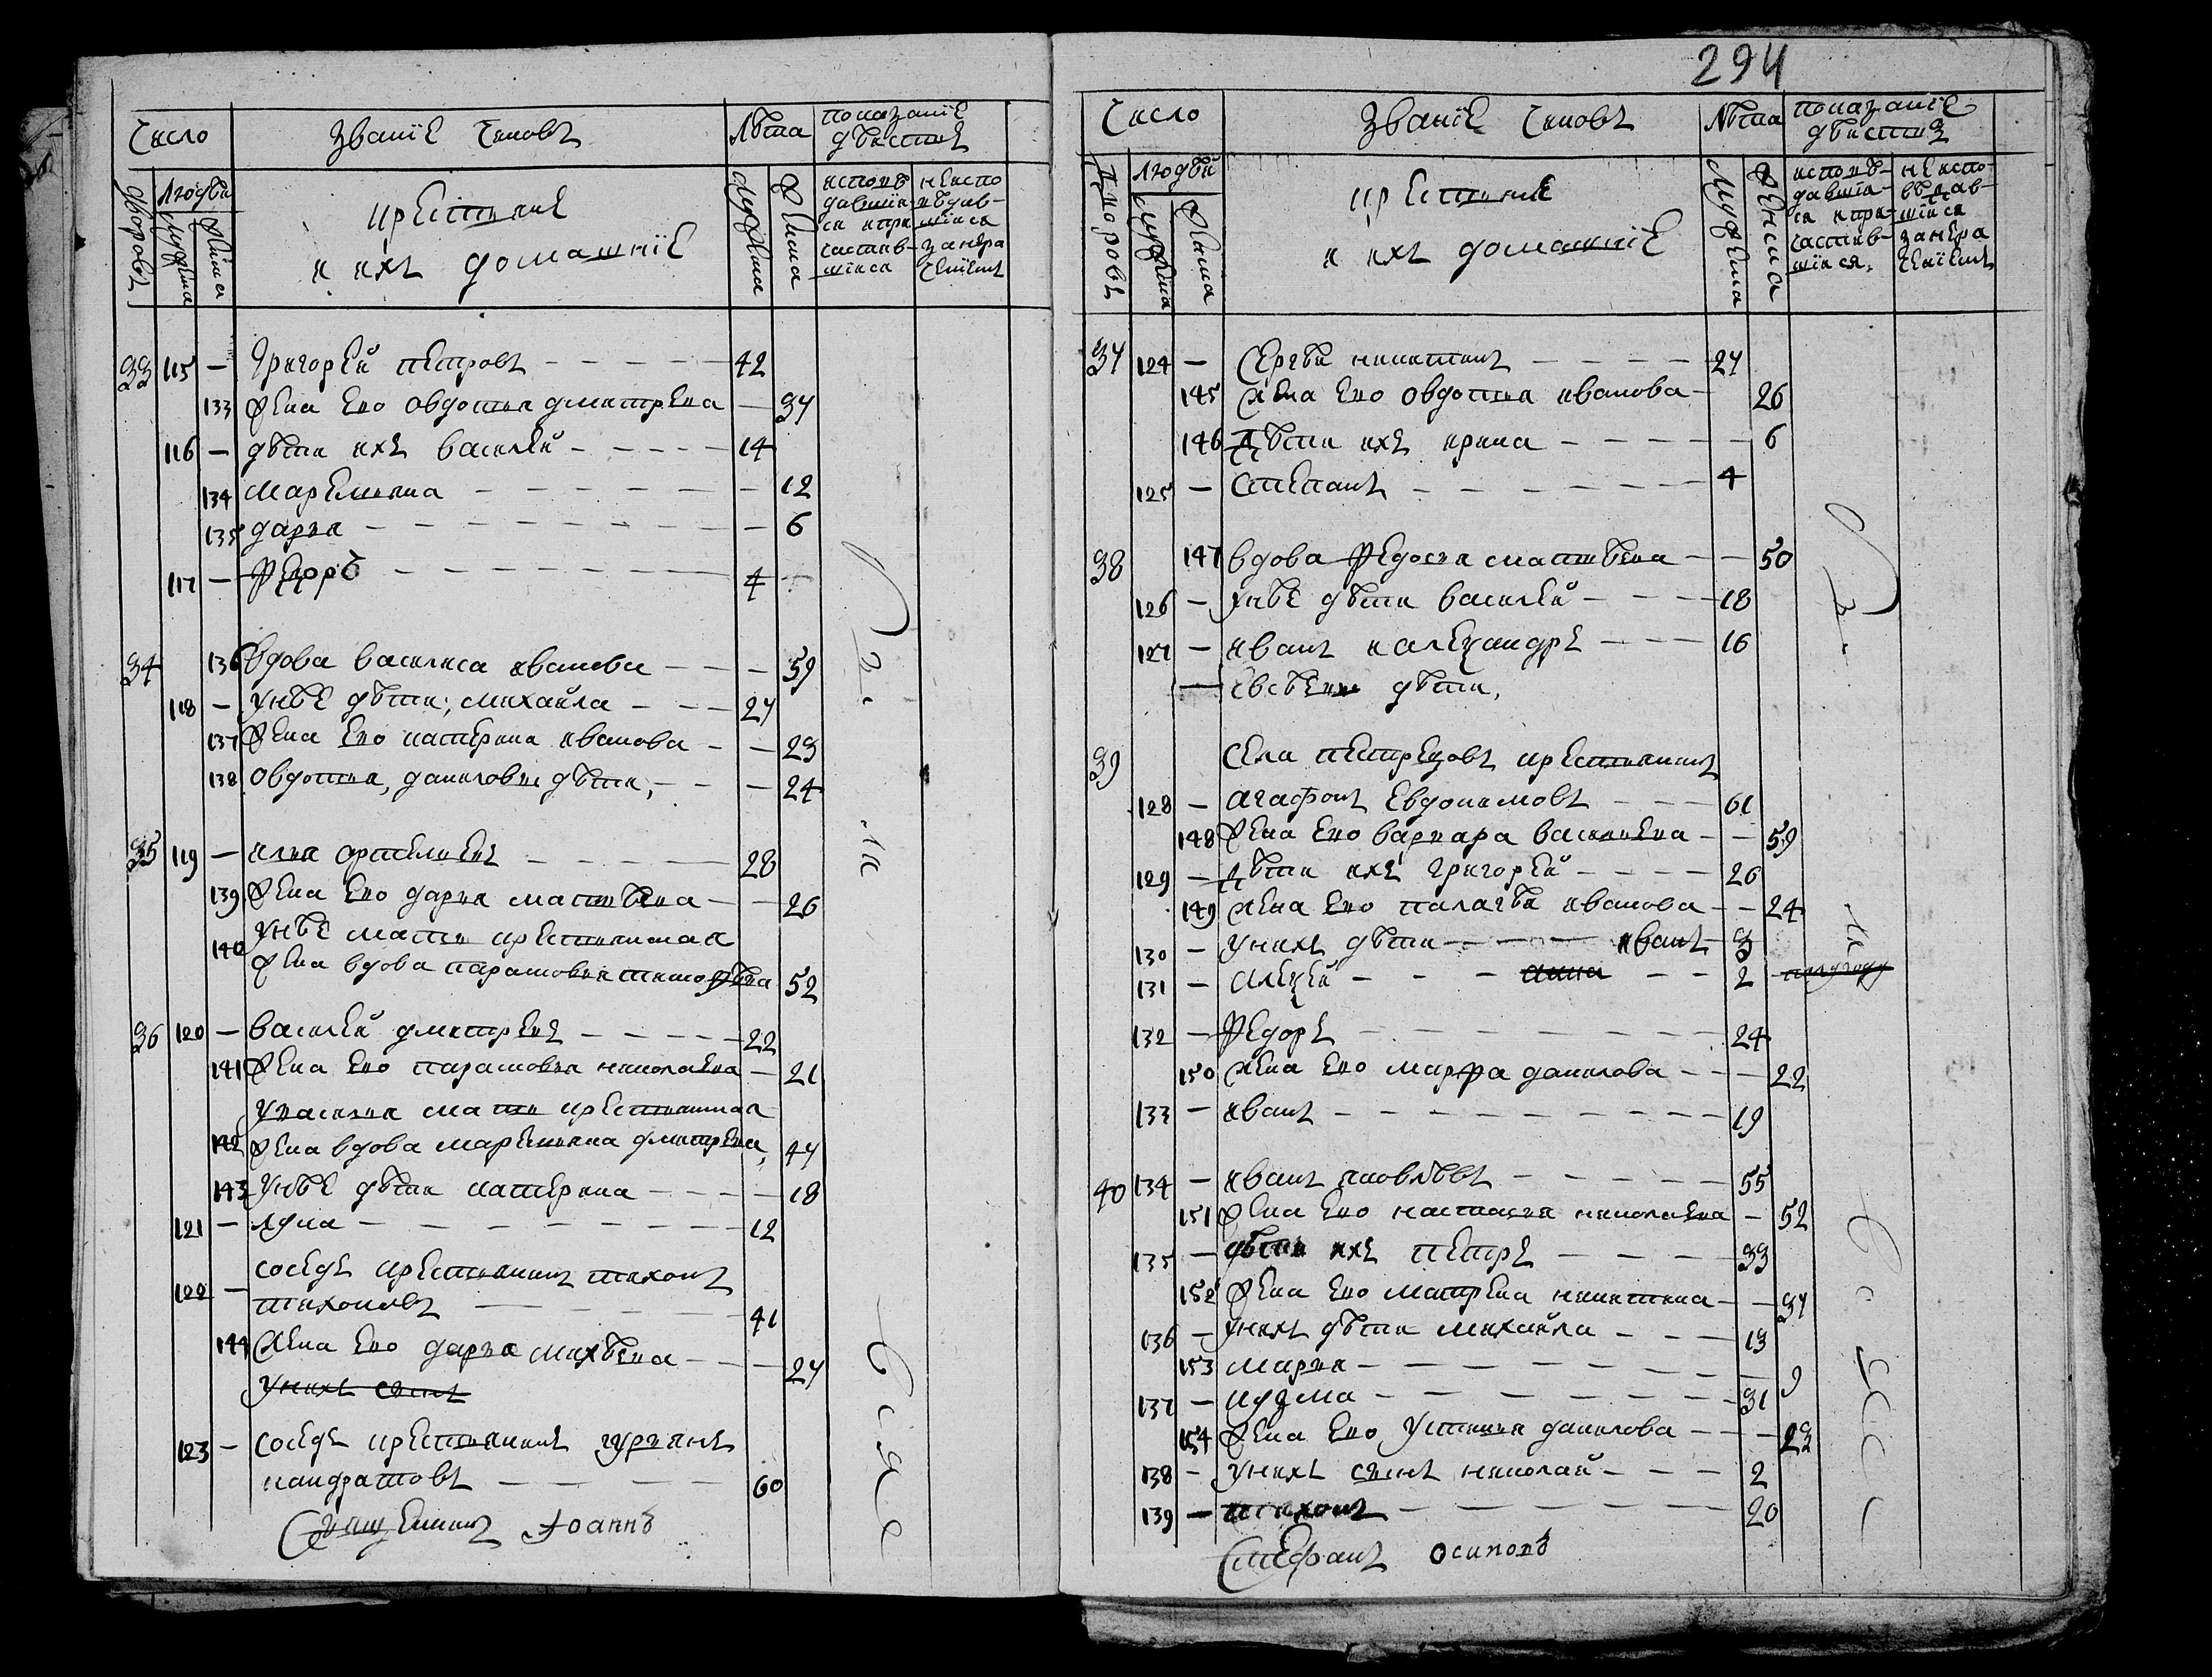 число
звание чиновъ
лѣта
показание дѣиства
дворовъ
людѣй
мужеска
женска
крестьяне
и ихъ домашние
мужеска
женска
исповѣдавшияся и причастившияся
неисповѣдавшияся за нерачениемъ
33 115 — григорей петровъ — 42
133 жена ево овдотья дмитриева — 37
116 — дѣти ихъ василей — 14
134 маремьяна — 12
135 дарья — 6
117 — Федоръ — 4
34 136 вдова василиса иванова — 59
118 — у нѣе дѣти, михаила — 27
137 жена ево катерина иванова — 23
138 овдотья, даниловы дѣти, — 24
35 119 — илья артемьевъ — 28
139 жена ево дарья матвѣева — 26
140 у нѣе мати крестьянская
жена вдова парасковья тимофѣева 52
36 120 — василей дмитриевъ — 22
141 жена ево парасковья николаева — 21
у василья мати крестьянская
142 жена вдова маремьяна дмитриева, 47
143 у нѣе дѣти катерина — 18
121 — лука — 12
122 — соседъ крестьянинъ тихонъ
тихоновъ — 41
144 жена ево дарья михѣева — 27
у нихъ сынъ
123 — соседъ крестьянинъ гурьянъ
кандратовъ — 60
Священникъ Иоаннъ
294
число
звание чиновъ
лѣта
показание дѣиства
дворовъ
людѣй
мужеска
женска
крестьяне
и ихъ домашние
мужеска
женска
исповѣдавшияся и причастившияся
неисповѣдавшияся за нерачениемъ
37 124 — Сергѣй никитинъ — 27
145 жена ево овдотья иванова — 26
146 дѣти ихъ ирина — 6
125 — Степанъ — 4
38 147 вдова Федосья матвѣева — 50
126 — у нѣе дѣти василей — 18
127 — иванъ и александръ — 16
— евсѣевы дѣти,
39 села петрецовъ крестьянинъ
128 — агафонъ евдокимовъ — 61
148 жена ево варвара васильева — 59
129 — дѣти ихъ григорей — 26
149 жена ево палагѣя иванова — 24
130 — у нихъ дѣти — иванъ 3
131 — алексей — анна — 2 полугоду
132 — Федоръ — 24
150 жена ево марфа данилова — 22
133 — иванъ — 19
40 134 — иванъ яковлѣвъ — 55
151 жена ево настасья николаева — 52
135 — дѣти ихъ петръ — 33
152 жена ево матрена никитина — 37
136 — у нихъ дѣти михаила — 13
153 марья — 9
137 — кузма — 31
154 жена ево устинья данилова — 23
138 — у нихъ сынъ николай — 2
139 — тихонъ — 20
Стефанъ Осиповъ